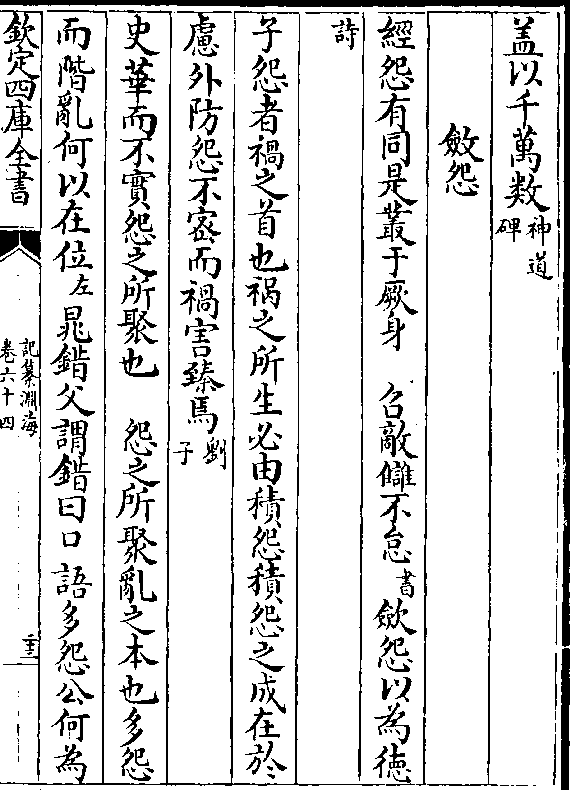 盖以千萬数神道碑
斂怨
經怨有同是叢于厥身　召敵讎不怠書斂怨以為徳
詩
子怨者禍之首也禍之所生必由積怨積怨之成在於
慮外防怨不宻而禍害臻焉劉子
史華而不實怨之所聚也　怨之所聚亂之本也多怨
而階亂何以在位左鼂錯父謂錯曰口語多怨公何為
欽定四庫全書
記纂淵海
卷六十四